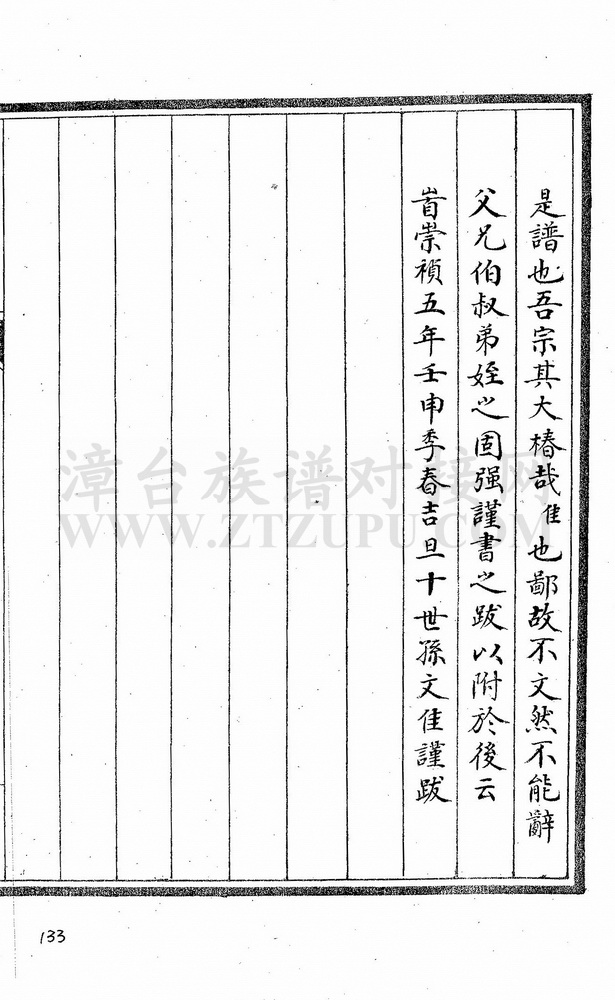 是譜也吾宗其大椿哉隹也鄙故不文然不能辭
父兄伯叔弟姪之固强謹書之跋以附於後云
崇禎五年壬申季春吉旦十世孫文佳謹跋
漳台族谱对接网
WWW.ZTZUPU.COM
133